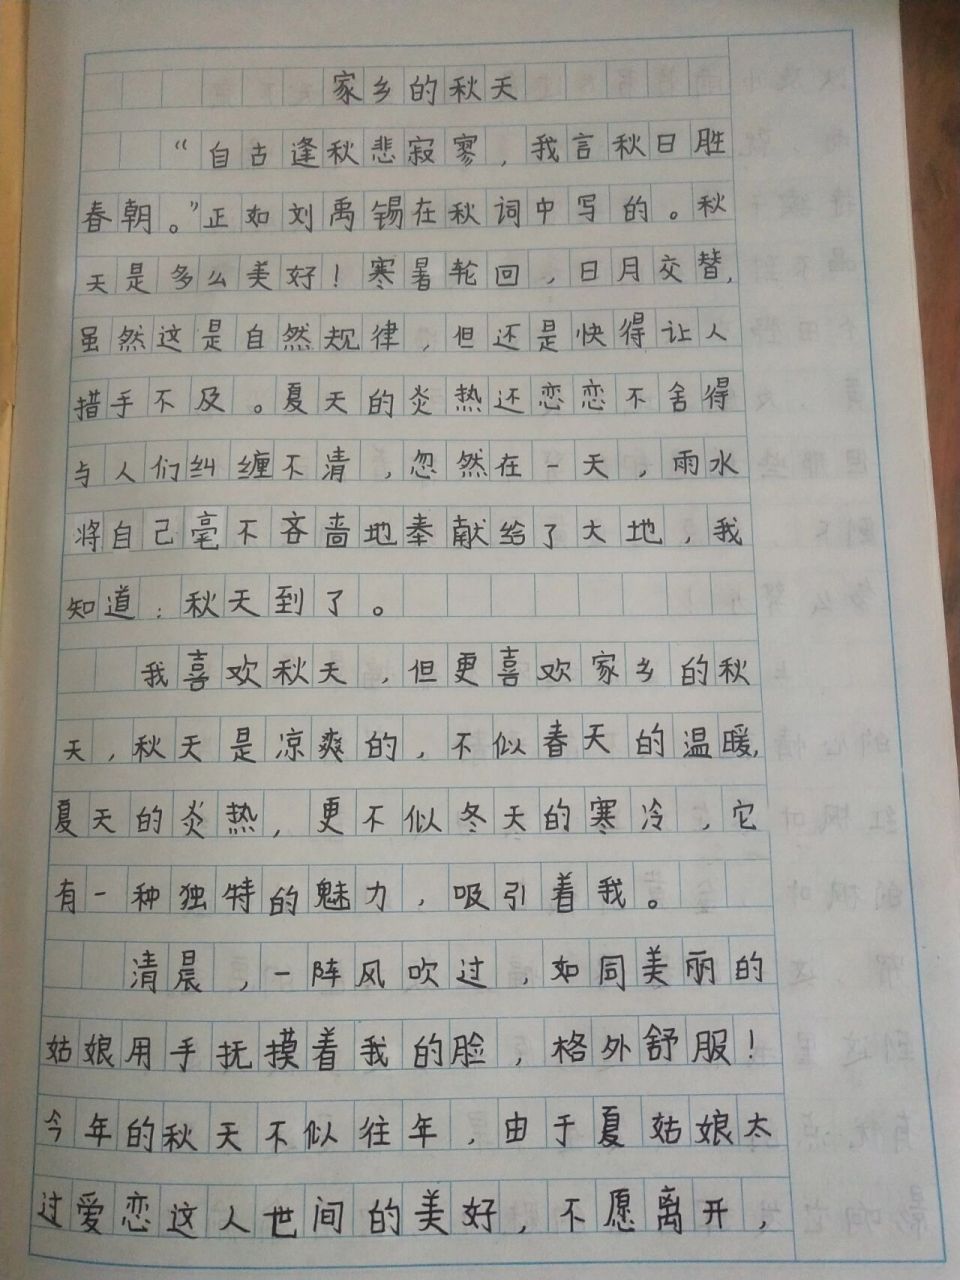 家乡的秋天
“自古逢秋悲寂寥，我言秋日胜
春朝。”正如刘禹锡在秋词中写的。秋
天是多么美好！寒暑轮回，日月交替，
虽然这是自然规律，但还是快得让人
措手不及。夏天的炎热还恋恋不舍得
与人们纠缠不清，忽然在一天，雨水
将自己毫不吝啬地奉献给了大地，我
知道：秋天到了。
我喜欢秋天，但更喜欢家乡的秋
天，秋天是凉爽的，不似春天的温暖，
夏天的炎热，更不似冬天的寒冷，它
有一种独特的魅力，吸引着我。
清晨，一阵风吹过，如同美丽的
姑娘用手抚摸着我的脸，格外舒服！
今年的秋天不似往年，由于夏姑娘太
过爱恋这人世间的美好，不愿离开，